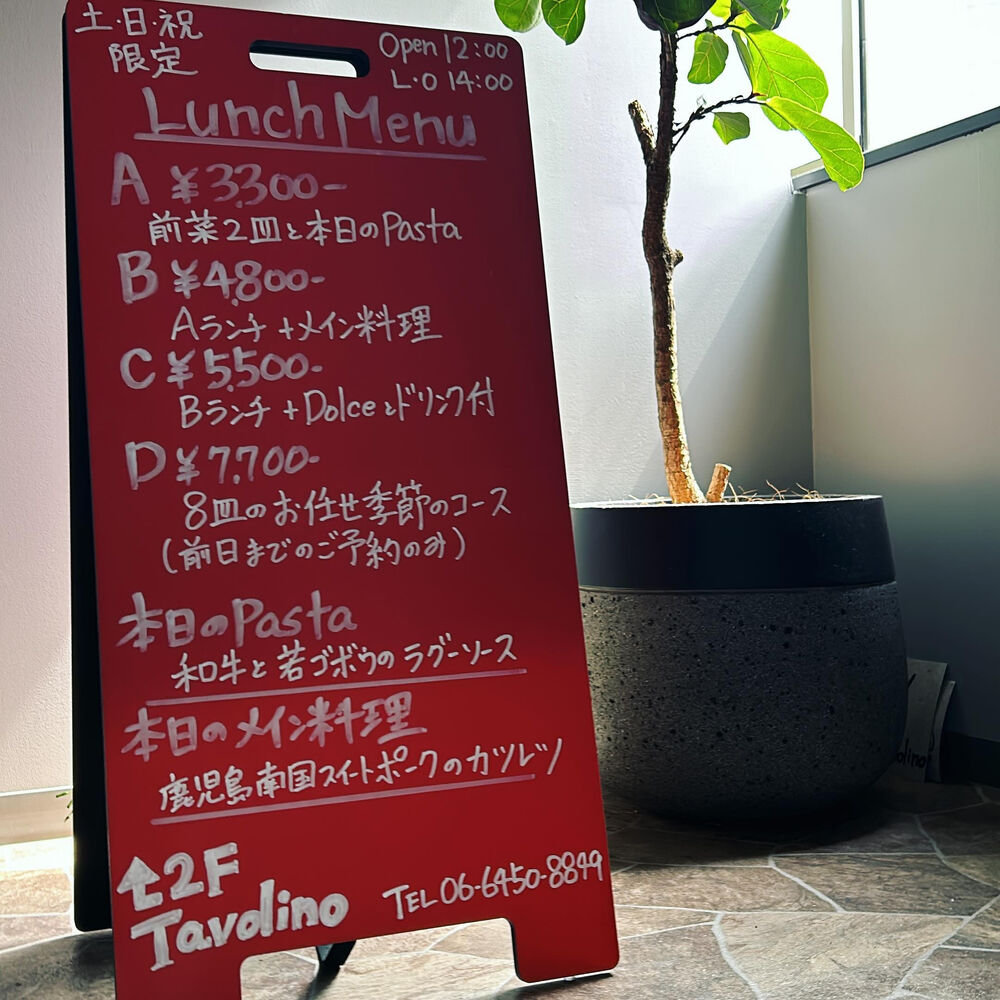 土・日・祝
限定
Open 12:00
L・O 14:00
Lunch Menu
A ¥3,300-
前菜2皿と本日のPasta
B ¥4,800-
Aランチ+メイン料理
C ¥5,500-
Bランチ+Dolceとドリンク付
D ¥7,700-
8皿のお任せ季節のコース
(前日までのご予約のみ)
本日のPasta
和牛と若ゴボウのラグーソース
本日のメイン料理
鹿児島南国スイートポークのカツレツ
↑2F
Tavolino
TEL 06-6450-8849